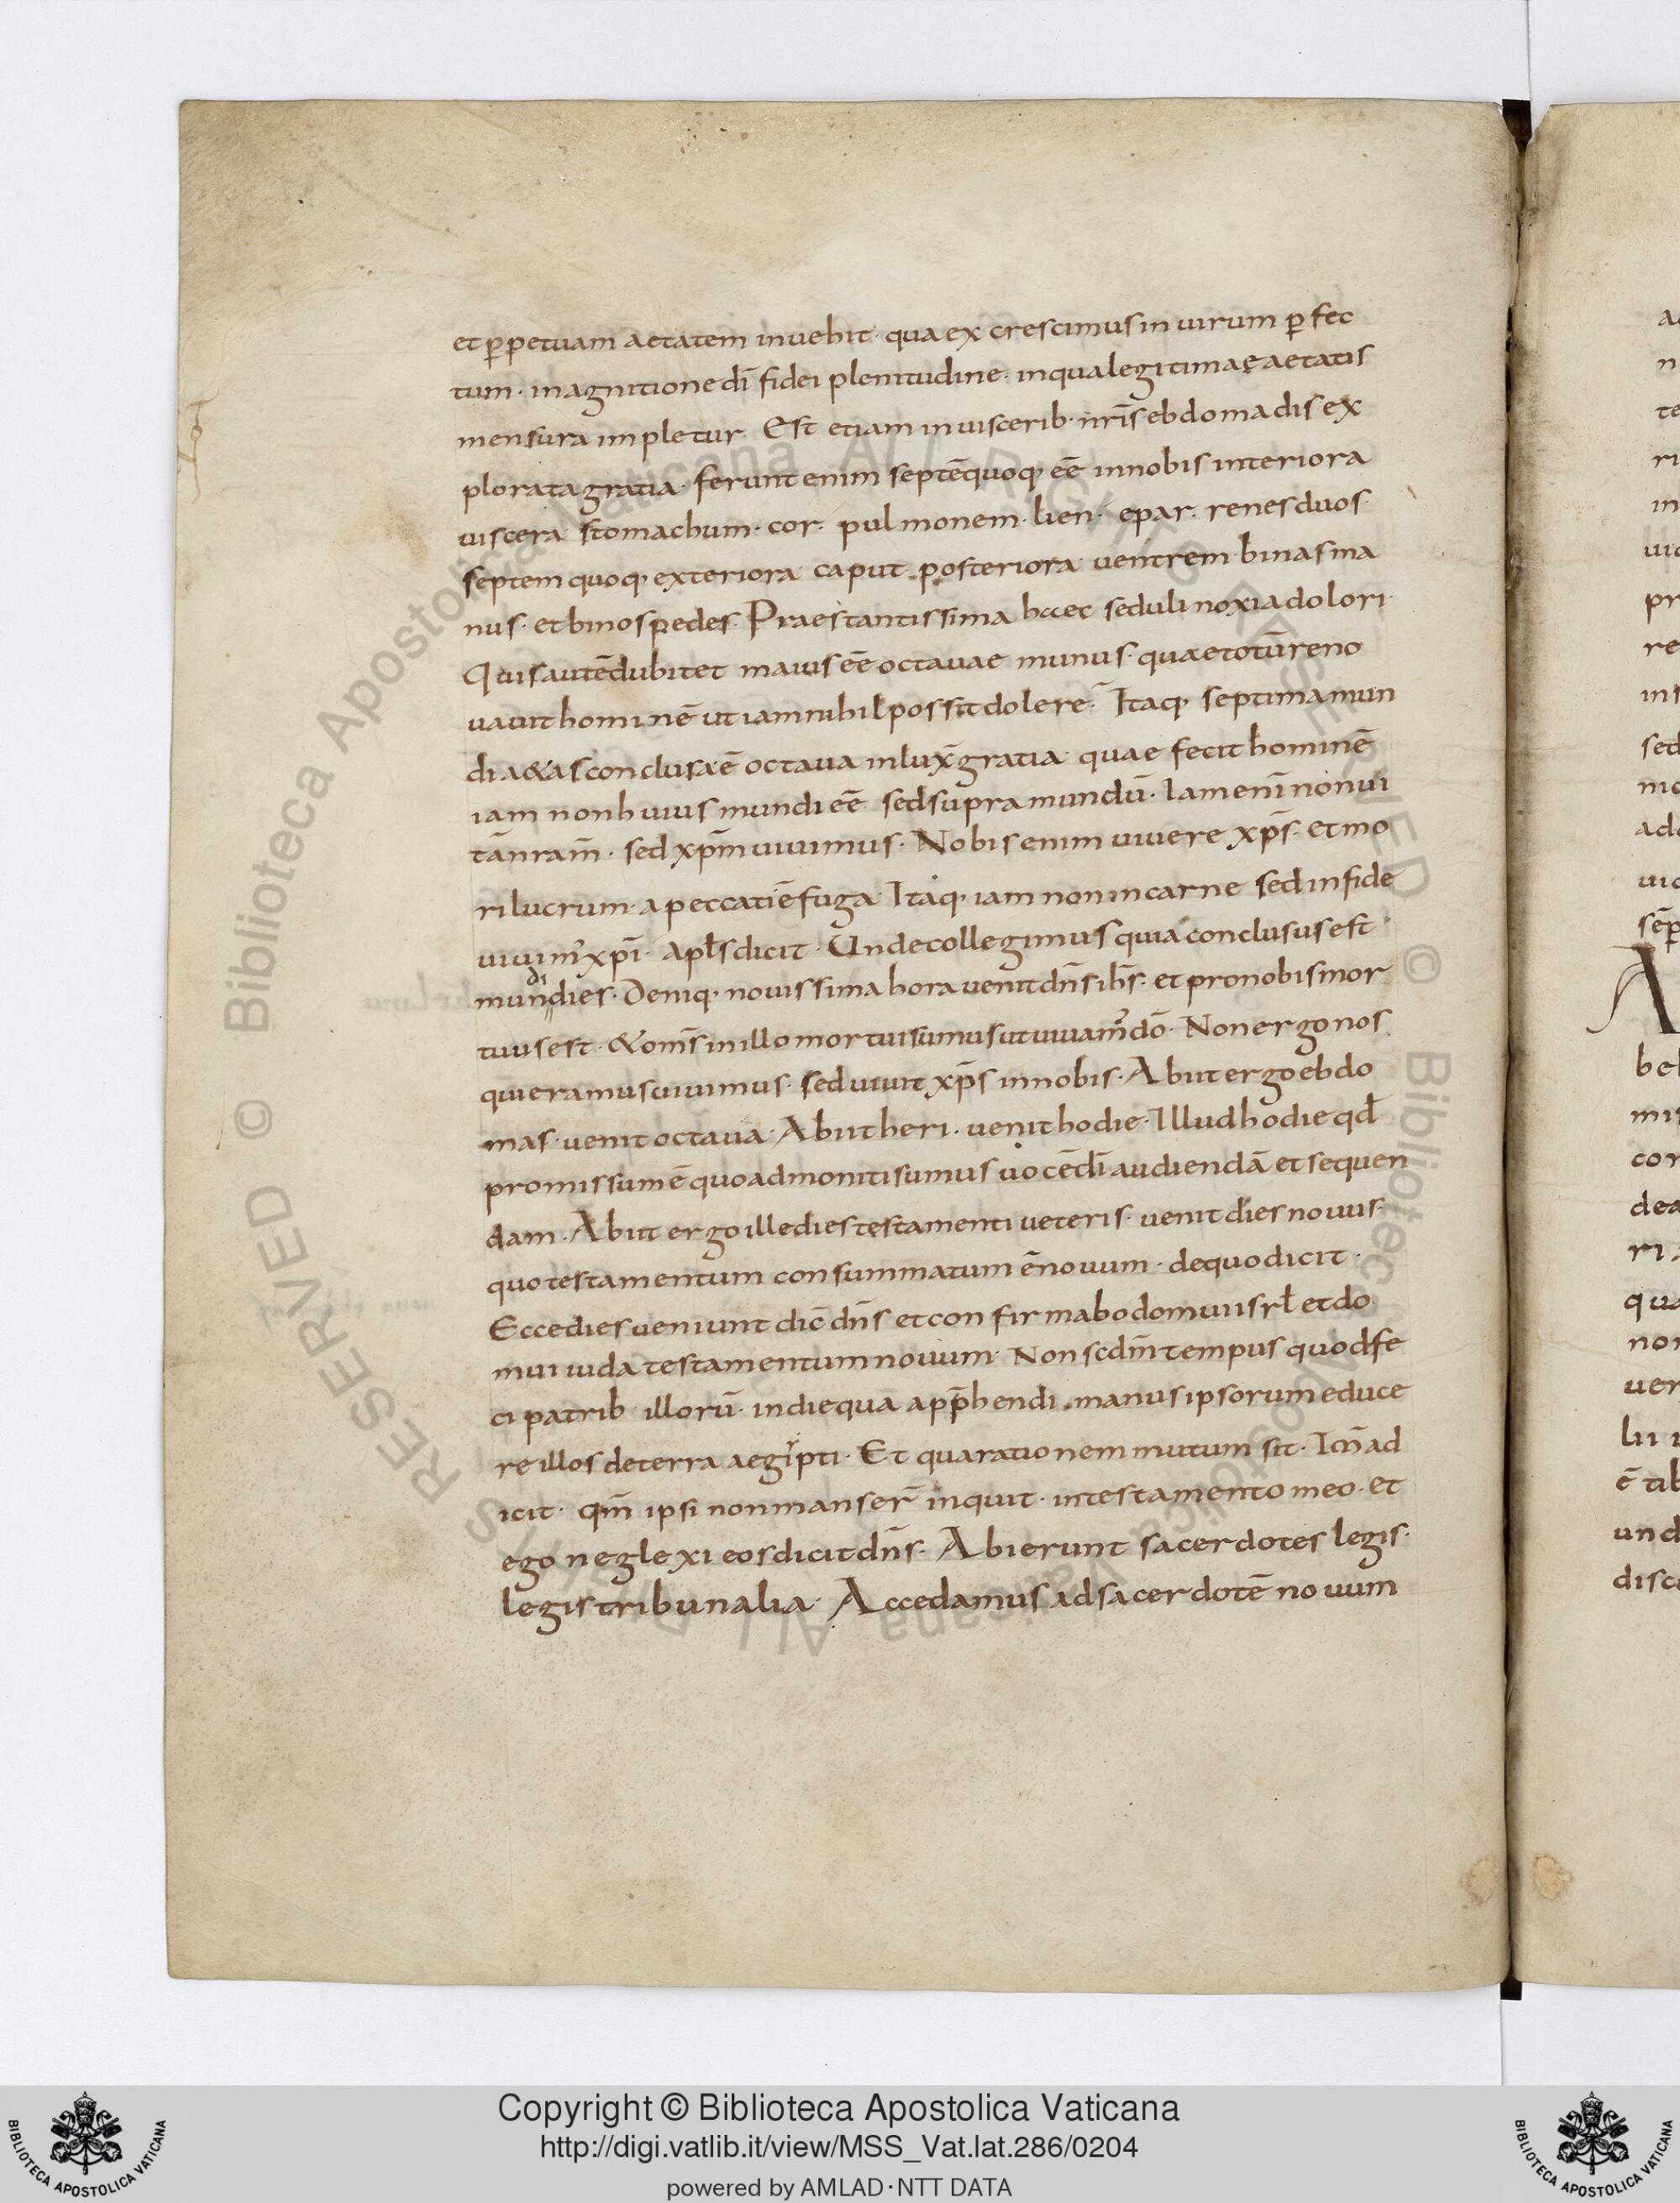 et p̄petuam aetatem inuehit· qua ex crescimus in uirum p̄fec
tum· in agnitione dī fidei plenitudine· in qua legitimae aetatis
mensura impletur· Est etiam in uiscerib· nr̄is ebdomadis ex
plorata gratia· ferunt enim septē quoq· eē in nobis interiora
uiscera stomachum· cor· pulmonem· lien· epar· renes duos·
septem quoq· exteriora caput posteriora uentrem binas ma
nus· et binos pedes· Praestantissima haec sed uli noxia dolori·
Quis autē dubitet maius eē octauae munus· quae totū reno
uauit hominē ut iam nihil possit dolere· Itaq· septima mun
di a&as conclusa ē octaua inlux̄ gratia quae fecit hominē
iam non huius mundi eē sed supra mundū· Iam enī non ui
tā nr̄am· sed xp̄m uiuimus· Nobis enim uiuere xp̄s· et mo
ri lucrum· a peccati ē fuga· Itaq· iam non in carne sed in fide
uiuim᾽ xp̄i· apl̄s dicit· Unde collegimus quia conclusus est
mundi dies· Deniq· nouissima hora uenit dn̄s ih̄s· et pro nobis mor
tuus est· & om̄s in illo mortui sumus ut uiuam᾽ dō· Non ergo nos
qui eramus uiuimus· sed uiuit xp̄s in nobis· Abiit ergo ebdo
mas· uenit octaua· Abiit heri· uenit hodie· Illud hodie qd̄
promissum ē quo admoniti sumus uocē dī audiendā et sequen
dam· Abiit ergo ille dies testamenti ueteris· uenit dies nouus·
quo testamentum consummatum ē nouum· de quo dicit·
Ecce dies ueniunt dic̄ dn̄s et confirmabo domui isrl̄ et do
mui iuda testamentum nouum· Non scdm̄ tempus quod fe
ci patrib· illorū· in die qua app̄hendi manus ipsorum educe
re illos de terra aegipti· Et qua rationem mutum sit· Ictn̄ ad
icit· qm̄ ipsi non manser̄ inquit· in testamento meo· et
ego neglexi eos dicit dn̄s· Abierunt sacerdotes legis·
legis tribunalia· Accedamus ad sacerdotē nouum
Copyright © Biblioteca Apostolica Vaticana
http://digi.vatlib.it/view/MSS_Vat.lat.286/0204
powered by AMLAD·NTT DATA